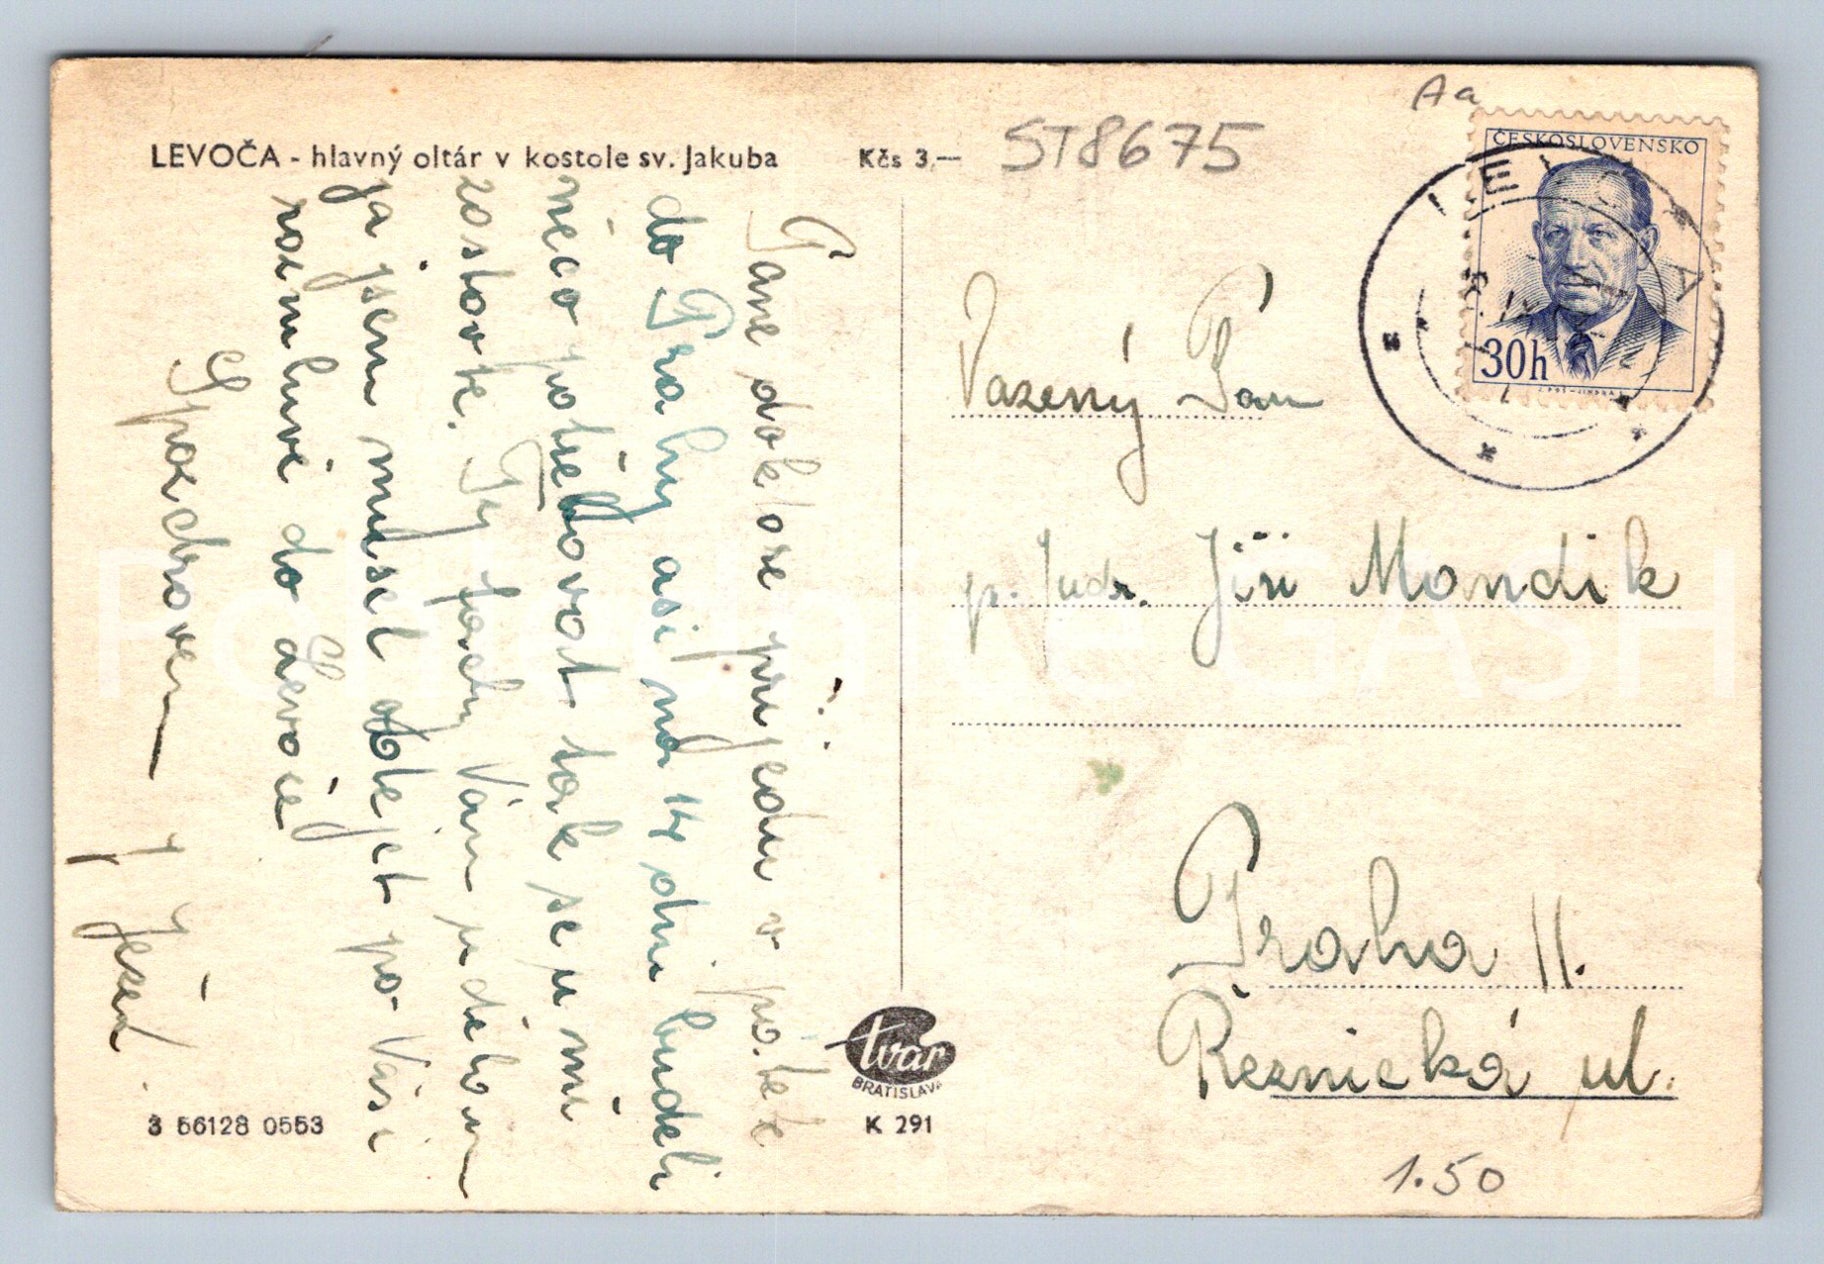 LEVOČA - hlavný oltár v kostole sv. Jakuba
Kčs 3.—
ST8675
Aa
ČESKOSLOVENSKO
30h
LEVOČA
Pane doktore přijedu v pátek
do Prahy asi na 14 dni budeli
něco potřebovat tak se u mi
zastavte. Ty fochy Vám udělam
ja jsem musel odejet po Vaši
rozmluvě do Levoče
Spozdravem
J Jezed
Vazený Pan
p. Judr. Jiří Mondik
Praha II.
Řeznická ul.
1.50
tvar
BRATISLAVA
K 291
3 56128 0553
Pohlednice GASH